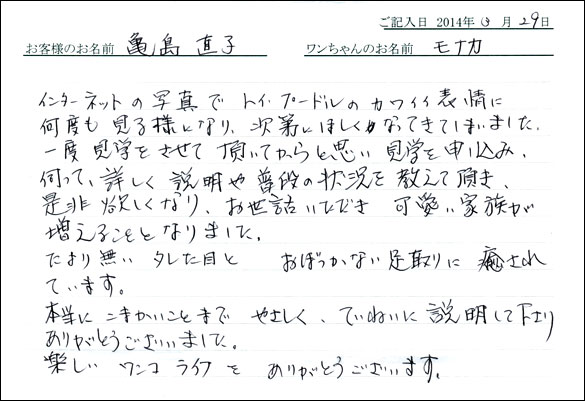 ご記入日 2014年 3 月 29日
お客様のお名前 亀島 直子 ワンちゃんのお名前 モナカ
インターネットの写真で トイ・プードルの カワイイ表情に
何度も 見る様になり、次第にほしくなってきていまいました。
一度 見学をさせて 頂いてからと思い 見学を申し込み、
伺って、詳しく 説明や普段の状況を 教えて頂き、
是非 欲しくなり、お世話いただき 可愛い家族が
増えることとなりました。
たより無い タレた目と おぼつかない足取りに 癒され
ています。
本当に こまかいことまで やさしく、ていねいに説明して下さり
ありがとうございました。
楽しい ワンコ ライフを ありがとうございます。